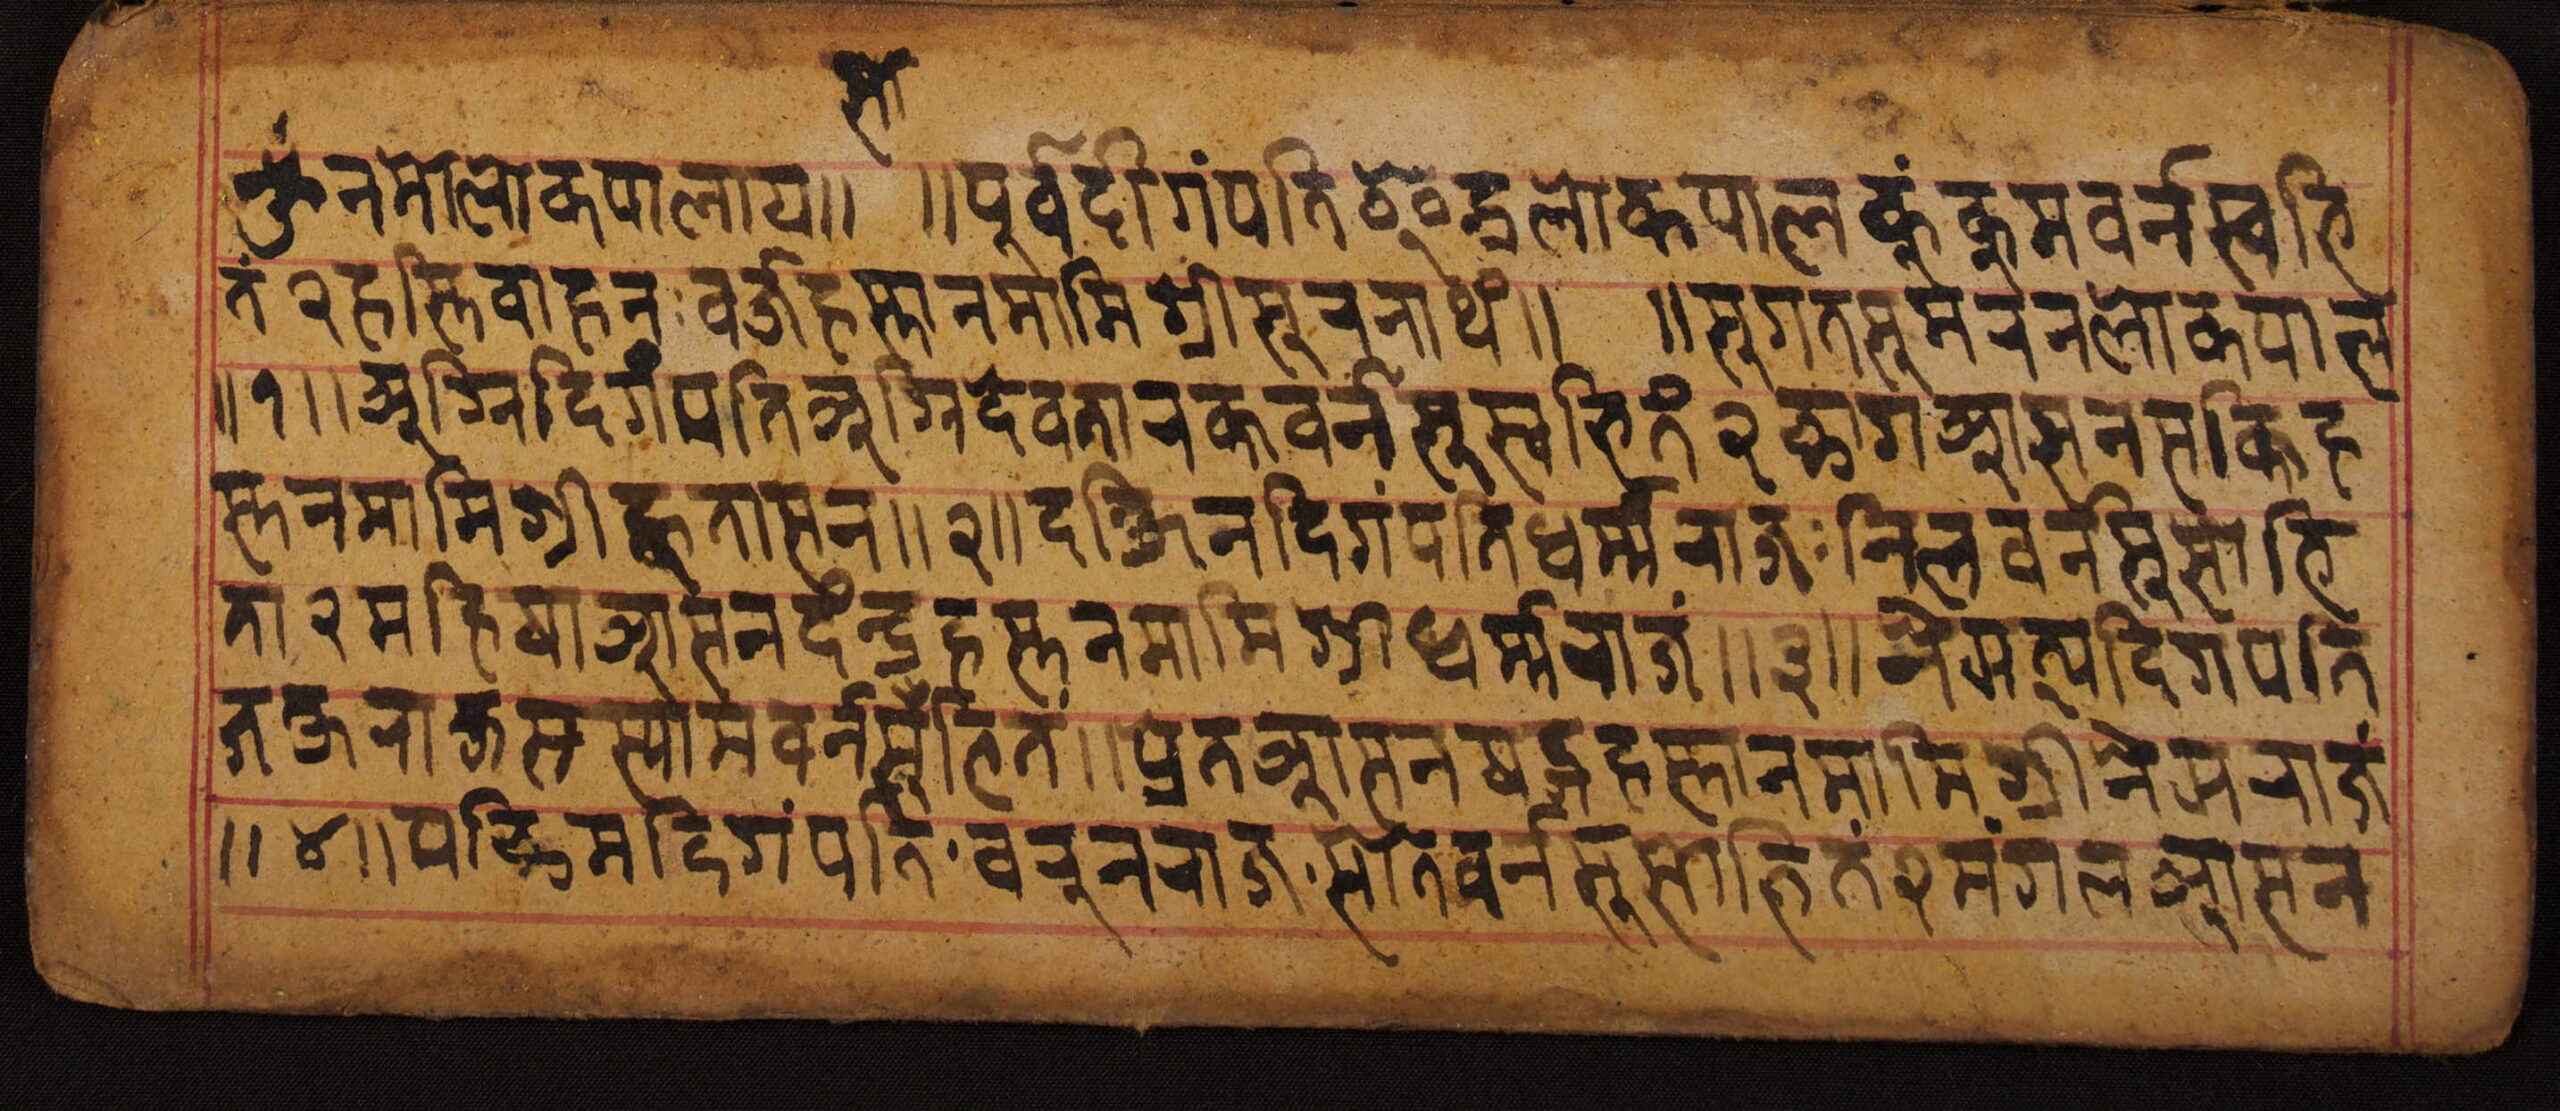 सा
ॐ नमो लोकपालाय॥ ॥पूर्वदीगंपति इन्द्रलोकपाल कुंकुमवर्नस्वहि
तं २ हस्तिवाहन: वर्ज्रहस्तानमामि श्रीसूरनाथं॥ ॥सुगतसुमरनलोकपाल
॥१॥ अग्निदिगंपति अग्निदेवता रक्तवर्न सुस्वहितं २ छागआसन सक्तिह
स्तनमामि श्रीहुतासन॥२॥ दक्षिनदिगंपति धर्म्मराज: निलवर्न सुसोहि
ता २ महिषाआसन दंन्द्रहस्तनमामि श्रीधर्म्मराजं॥३॥ नैऋत्यदिगपति
जक्षराक्षस स्यामवर्नसुहितं॥ प्रतआसन षड्गहस्तानमामि श्रीनैऋराजं
॥४॥ पछिमदिगंपति· वरुनराज· सोतवर्नसुसोहितं २ मंगलआसन